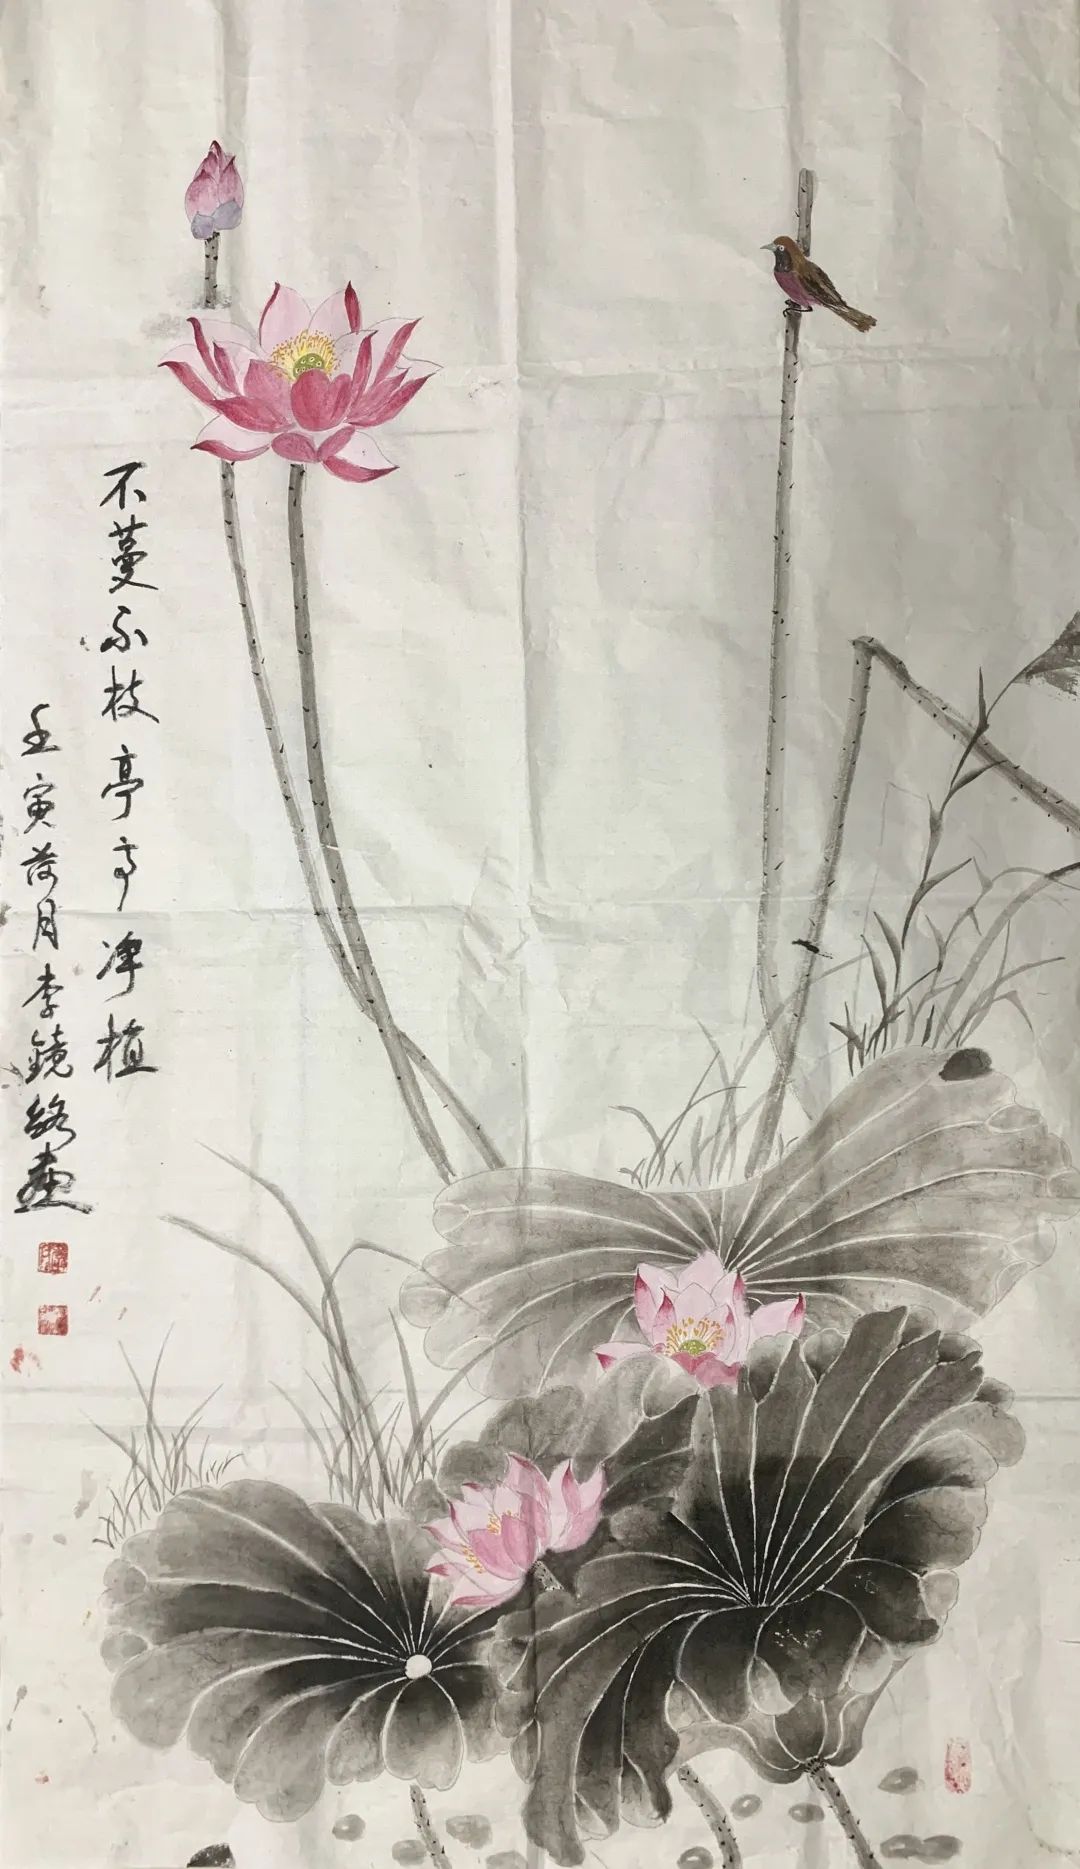 不蔓不枝亭亭净植
壬寅荷月李鏡銘画